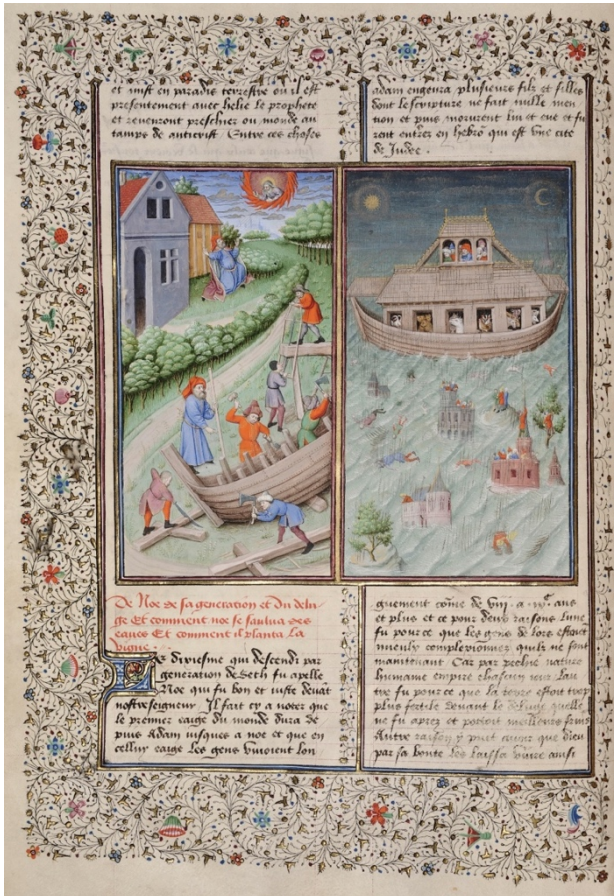 et mist en paradis terrestre ou il est
presentement avec helie le prophete
et revenront preschier ou monde au
tamps de antecrist Entre ces choses
adam engenra plusieurs filz et filles
dont lescripture ne fait nulle men
tion et puis morurent lui et eve et fu
rent enterez en hebron qui est une cite
de Judee.
De Noe de sa generation et du delu-
ge Et comment noe se saulva des
eaues Et comment il planta la
vigne.
Le dixiesme qui descendi par
generation de Seth fu apelle
Noe qui fu bon et iuste devat
nostreseigneur Il fait cy a noter que
le premier eaige du monde dura de
puis Adam iusques a noe et que en
celluy eaige les gens vivoient lon
guement come de viii. a ans
et plus et ce pour deux raisons Lune
fu pource que les gens de lors estoiet
mieulx complexionnez quilz ne sont
maintenant Car par nature
humaine empire chascun iour Lau
tre fu pour ce que la terre estoit trop
plus fertile devant le deluge quelle
ne fu aprez et portoit meilleurs fruis
Autre raison y puet avoir que dieu
par sa bonte les laissa vivre ainsi